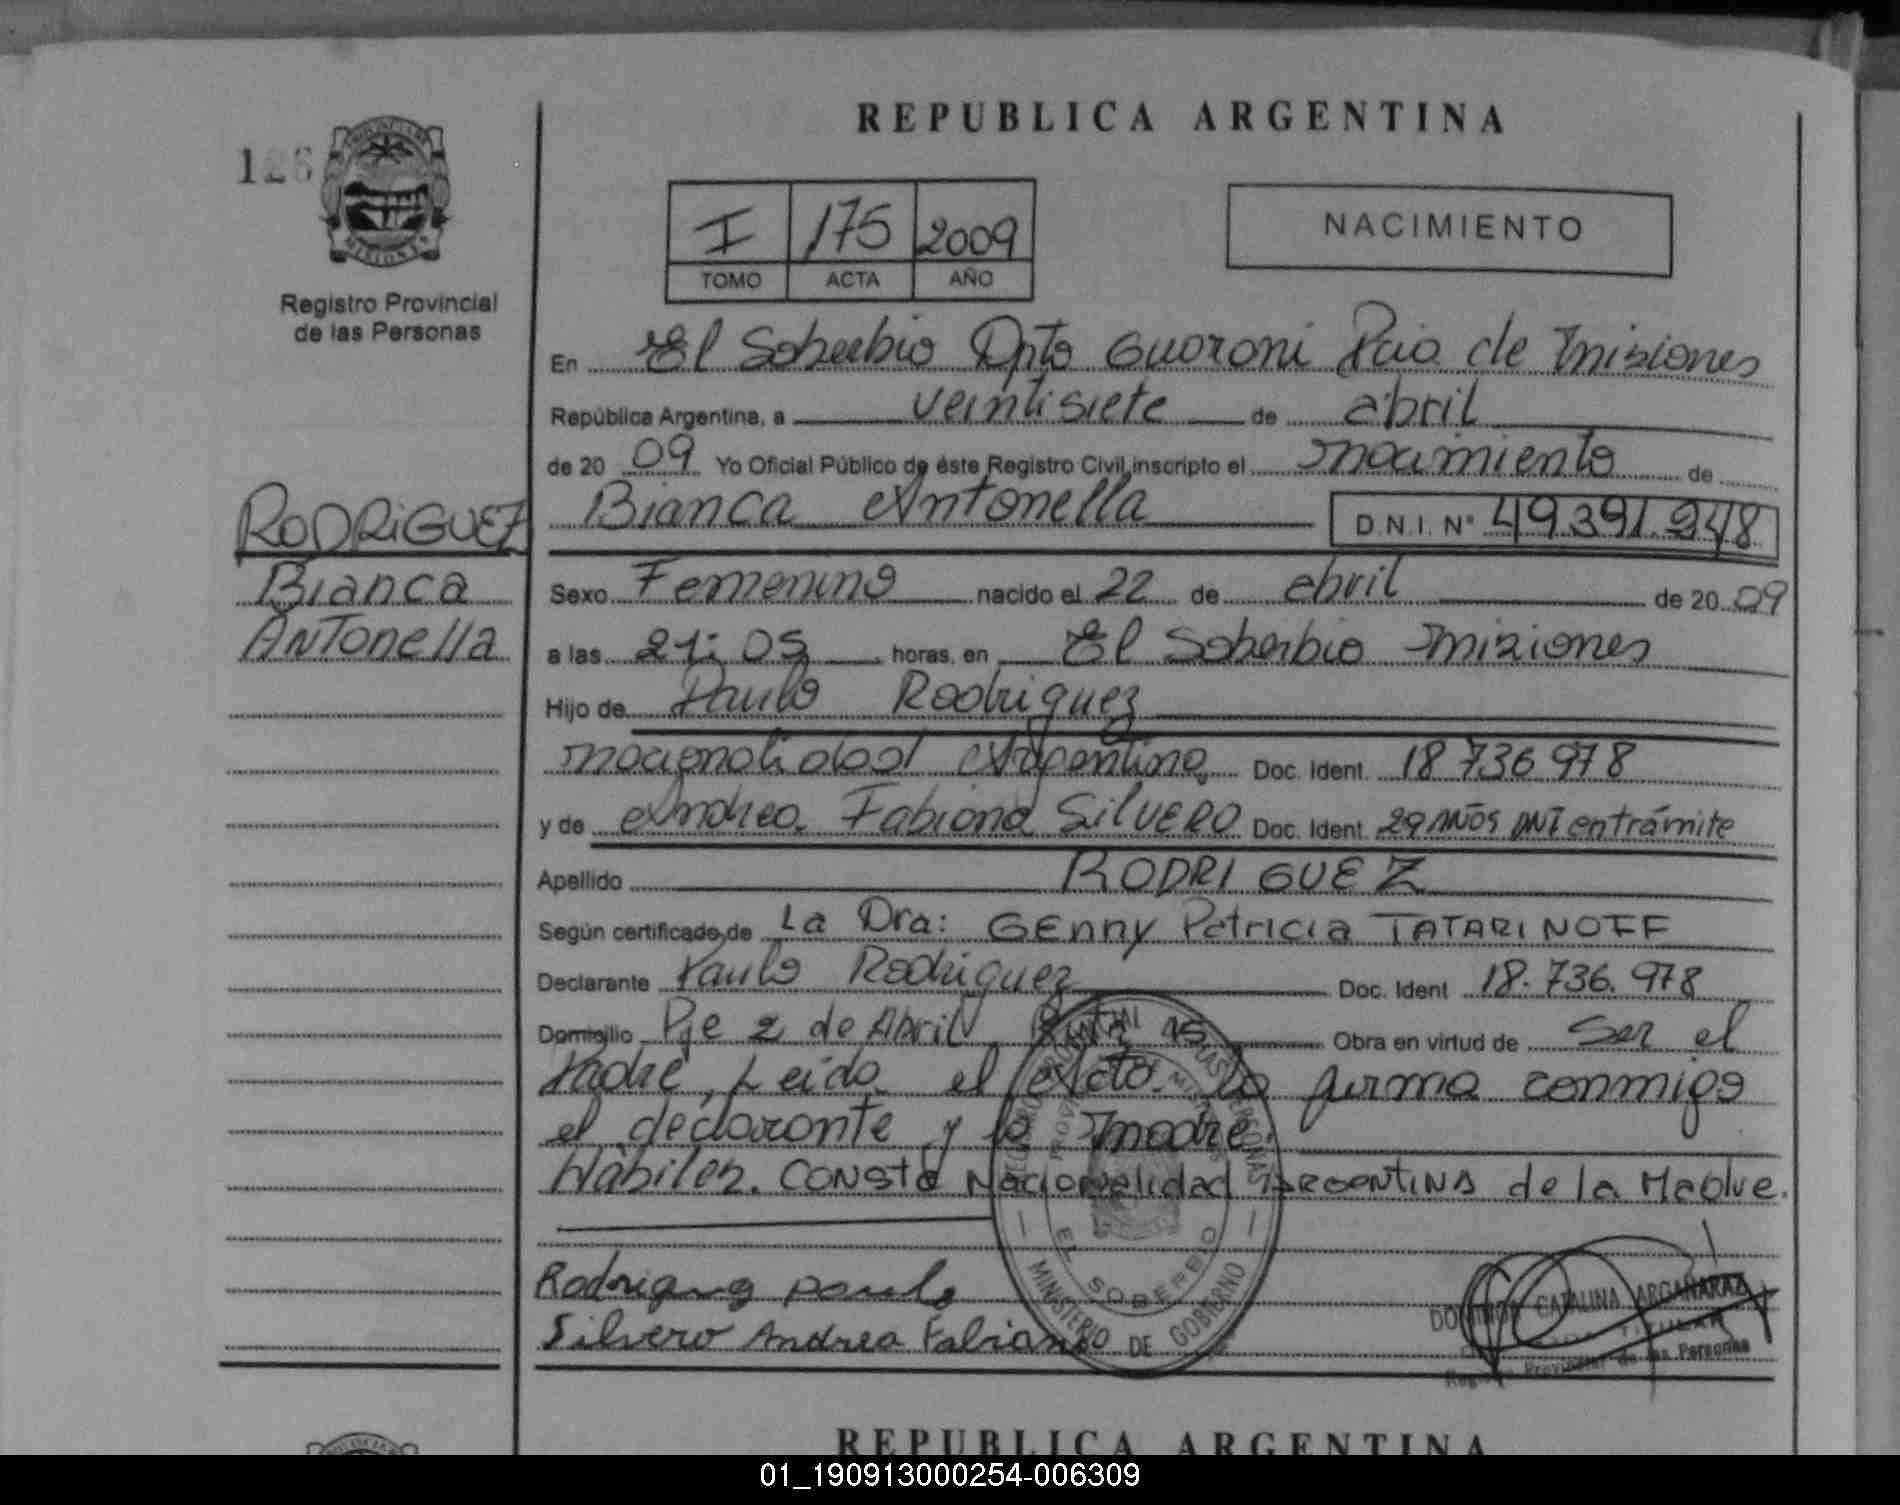 REPUBLICA ARGENTINA
126
PROVINCIA DE MISIONES
Registro Provincial
de las Personas
I 175 2009
TOMO ACTA AÑO
NACIMIENTO
En El Soberbio Dpto Guarani Pcia de Misiones
República Argentina, a veintisiete de abril
de 2009 Yo Oficial Público de éste Registro Civil, inscripto el nacimiento de
Bianca Antonella D.N.I. N° 49.391.948
RODRIGUEZ
Bianca
Antonella
Sexo Femenino nacido el 22 de abril de 2009
a las 21:05 horas, en El Soberbio Misiones
Hijo de Paulo Rodriguez
nacionalidad Argentina Doc. Ident. 18 736 978
y de Andrea Fabiana SILVERO Doc. Ident. 29 AÑOS DNI en trámite
Apellido RODRIGUEZ
Según certificado de La Dra: GEnny Patricia TATARINOFF
Declarante Paulo Rodriguez Doc. Ident 18.736.978
Domicilio Pje 2 de Abril Ruta 15 Obra en virtud de Ser el
Padre, Leida el Acta la firma conmigo
el declarante y la madre
Hábiles. CONSTA Nacionalidad ARGENTINA de la Madre.
Rodriguez Paulo
Silvero Andrea Fabiana
REGISTRO PROVINCIAL DE LAS PERSONAS
EL SOBERBIO
MINISTERIO DE GOBIERNO
CATALINA ARGAÑARAZ
TITULAR
Registro Provincial de las Personas
REPUBLICA ARGENTINA
01_190913000254-006309